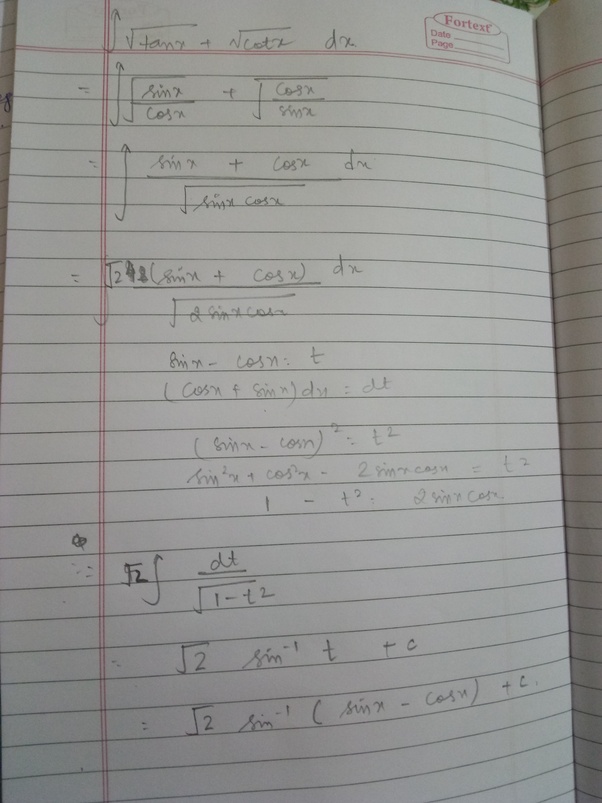 Fortext
Date
Page
∫ √tanx + √cotx dx
= ∫ √(sinx/cosx) + √(cosx/sinx)
= ∫ (sinx + cosx)/√(sinx cosx) dx
= ∫ √2 (sinx + cosx)/√(2 sinx cosx) dx
sinx - cosx = t
(cosx + sinx) dx = dt
(sinx - cosx)² = t²
sin²x + cos²x - 2 sinx cosx = t²
1 - t² = 2 sinx cosx
= √2 ∫ dt/√(1-t²)
= √2 sin⁻¹ t + c
= √2 sin⁻¹ (sinx - cosx) + c.